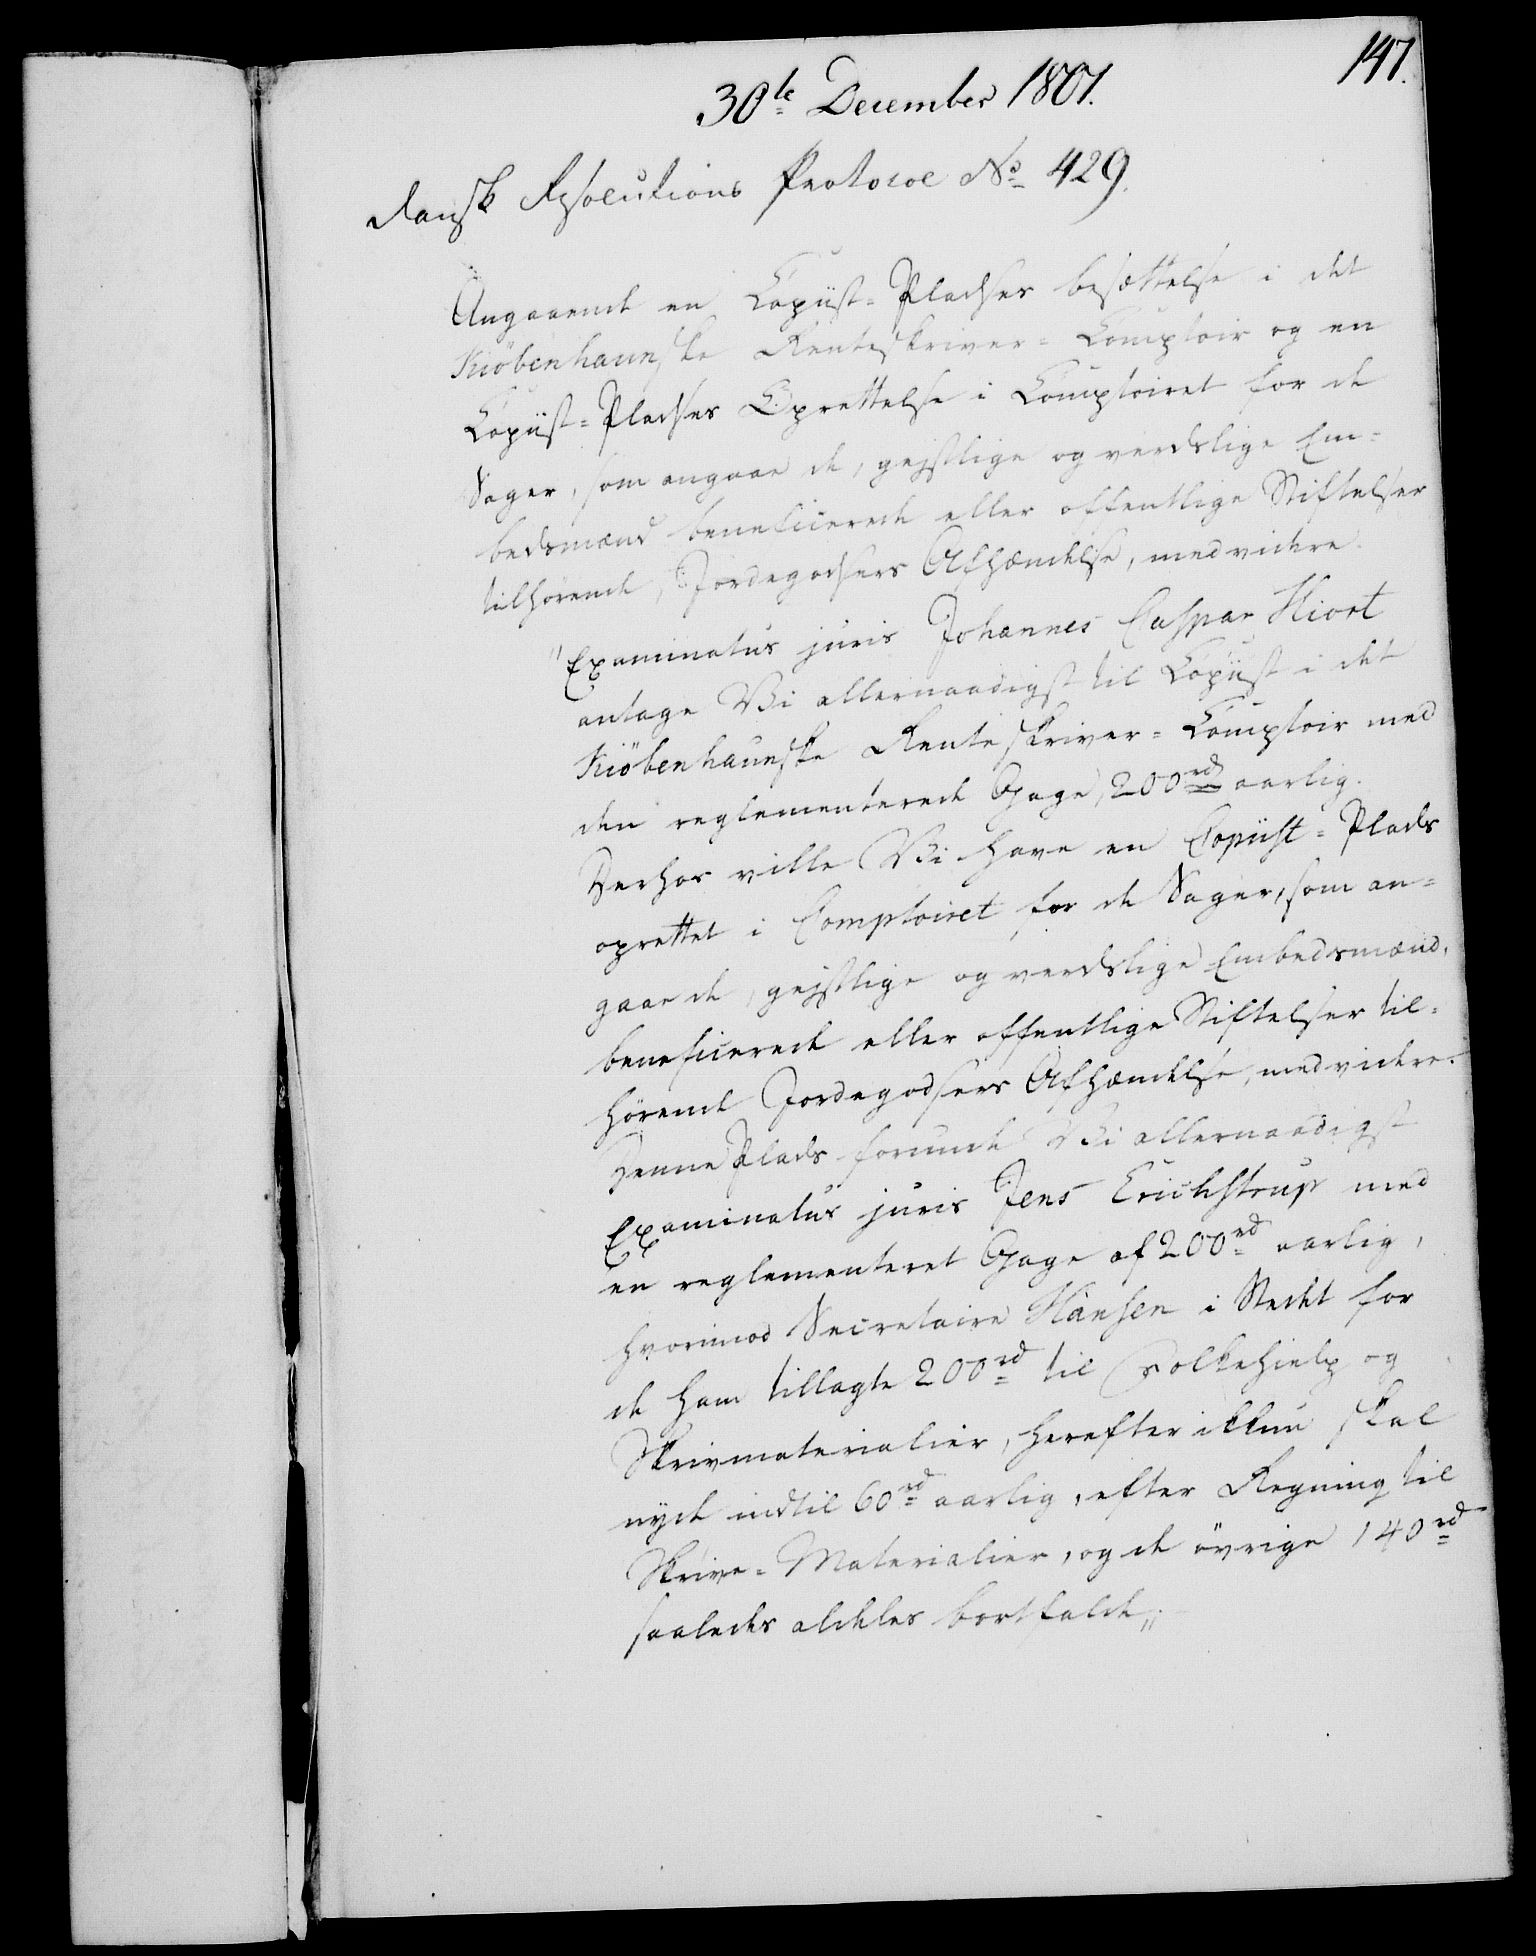 147.
30te December 1801.
Dansk Resolutions Protocol No 429.
Angaaende en Copiist-Pladses besættelse i det
Kiöbenhavnske Renteskriver-Comptoir og en
Copiist-Pladses Oprettelse i Comptoiret for de
Sager, som angaae de, gejstlige og verdslige Em-
bedsmænd beneficerede eller offentlige Stiftelser
tilhørende, Jordegodsers Afhændelse, med videre.
"Examinatus juris Johannes Caspar Hiort
antage Vi allernaadigst til Copiist i det
Kiöbenhavnske Renteskriver-Comptoir med
den reglementerede Gage, 200 rd aarlig.
Derhos ville Vi have en Copiist-Plads
oprettet i Comptoiret for de Sager, som an-
gaae de, gejstlige og verdslige Embedsmænd,
beneficerede eller offentlige Stiftelser til-
hørende Jordegodsers Afhændelse, med videre.
Denne Plads forunde Vi allernaadigst
Examinatus juris Jens Erichstrup med
en reglementeret Gage af 200 rd aarlig,
hvorimod Secretaire Hansen i Stedet for
de ham tillagte 200 rd til Folkehielp og
Skrivmaterialier, herefter ikkun skal
nyde indtil 60 rd aarlig, efter Regning til
Skrive-Materialier, og de övrige 140 rd
saaledes aldeles bortfalde".